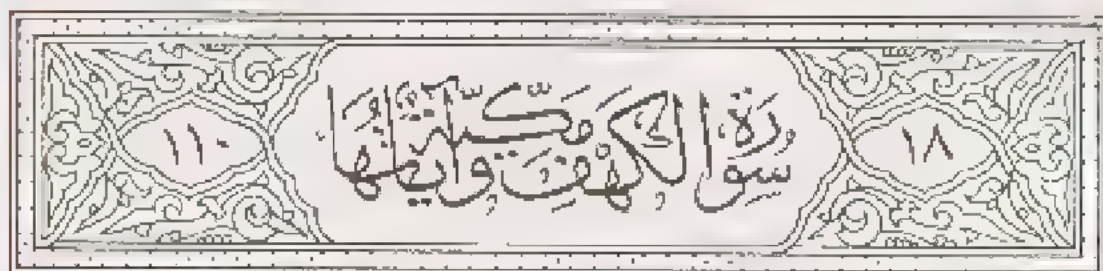 ١٨ سورة الكهف مكية وآياتها ١١٠